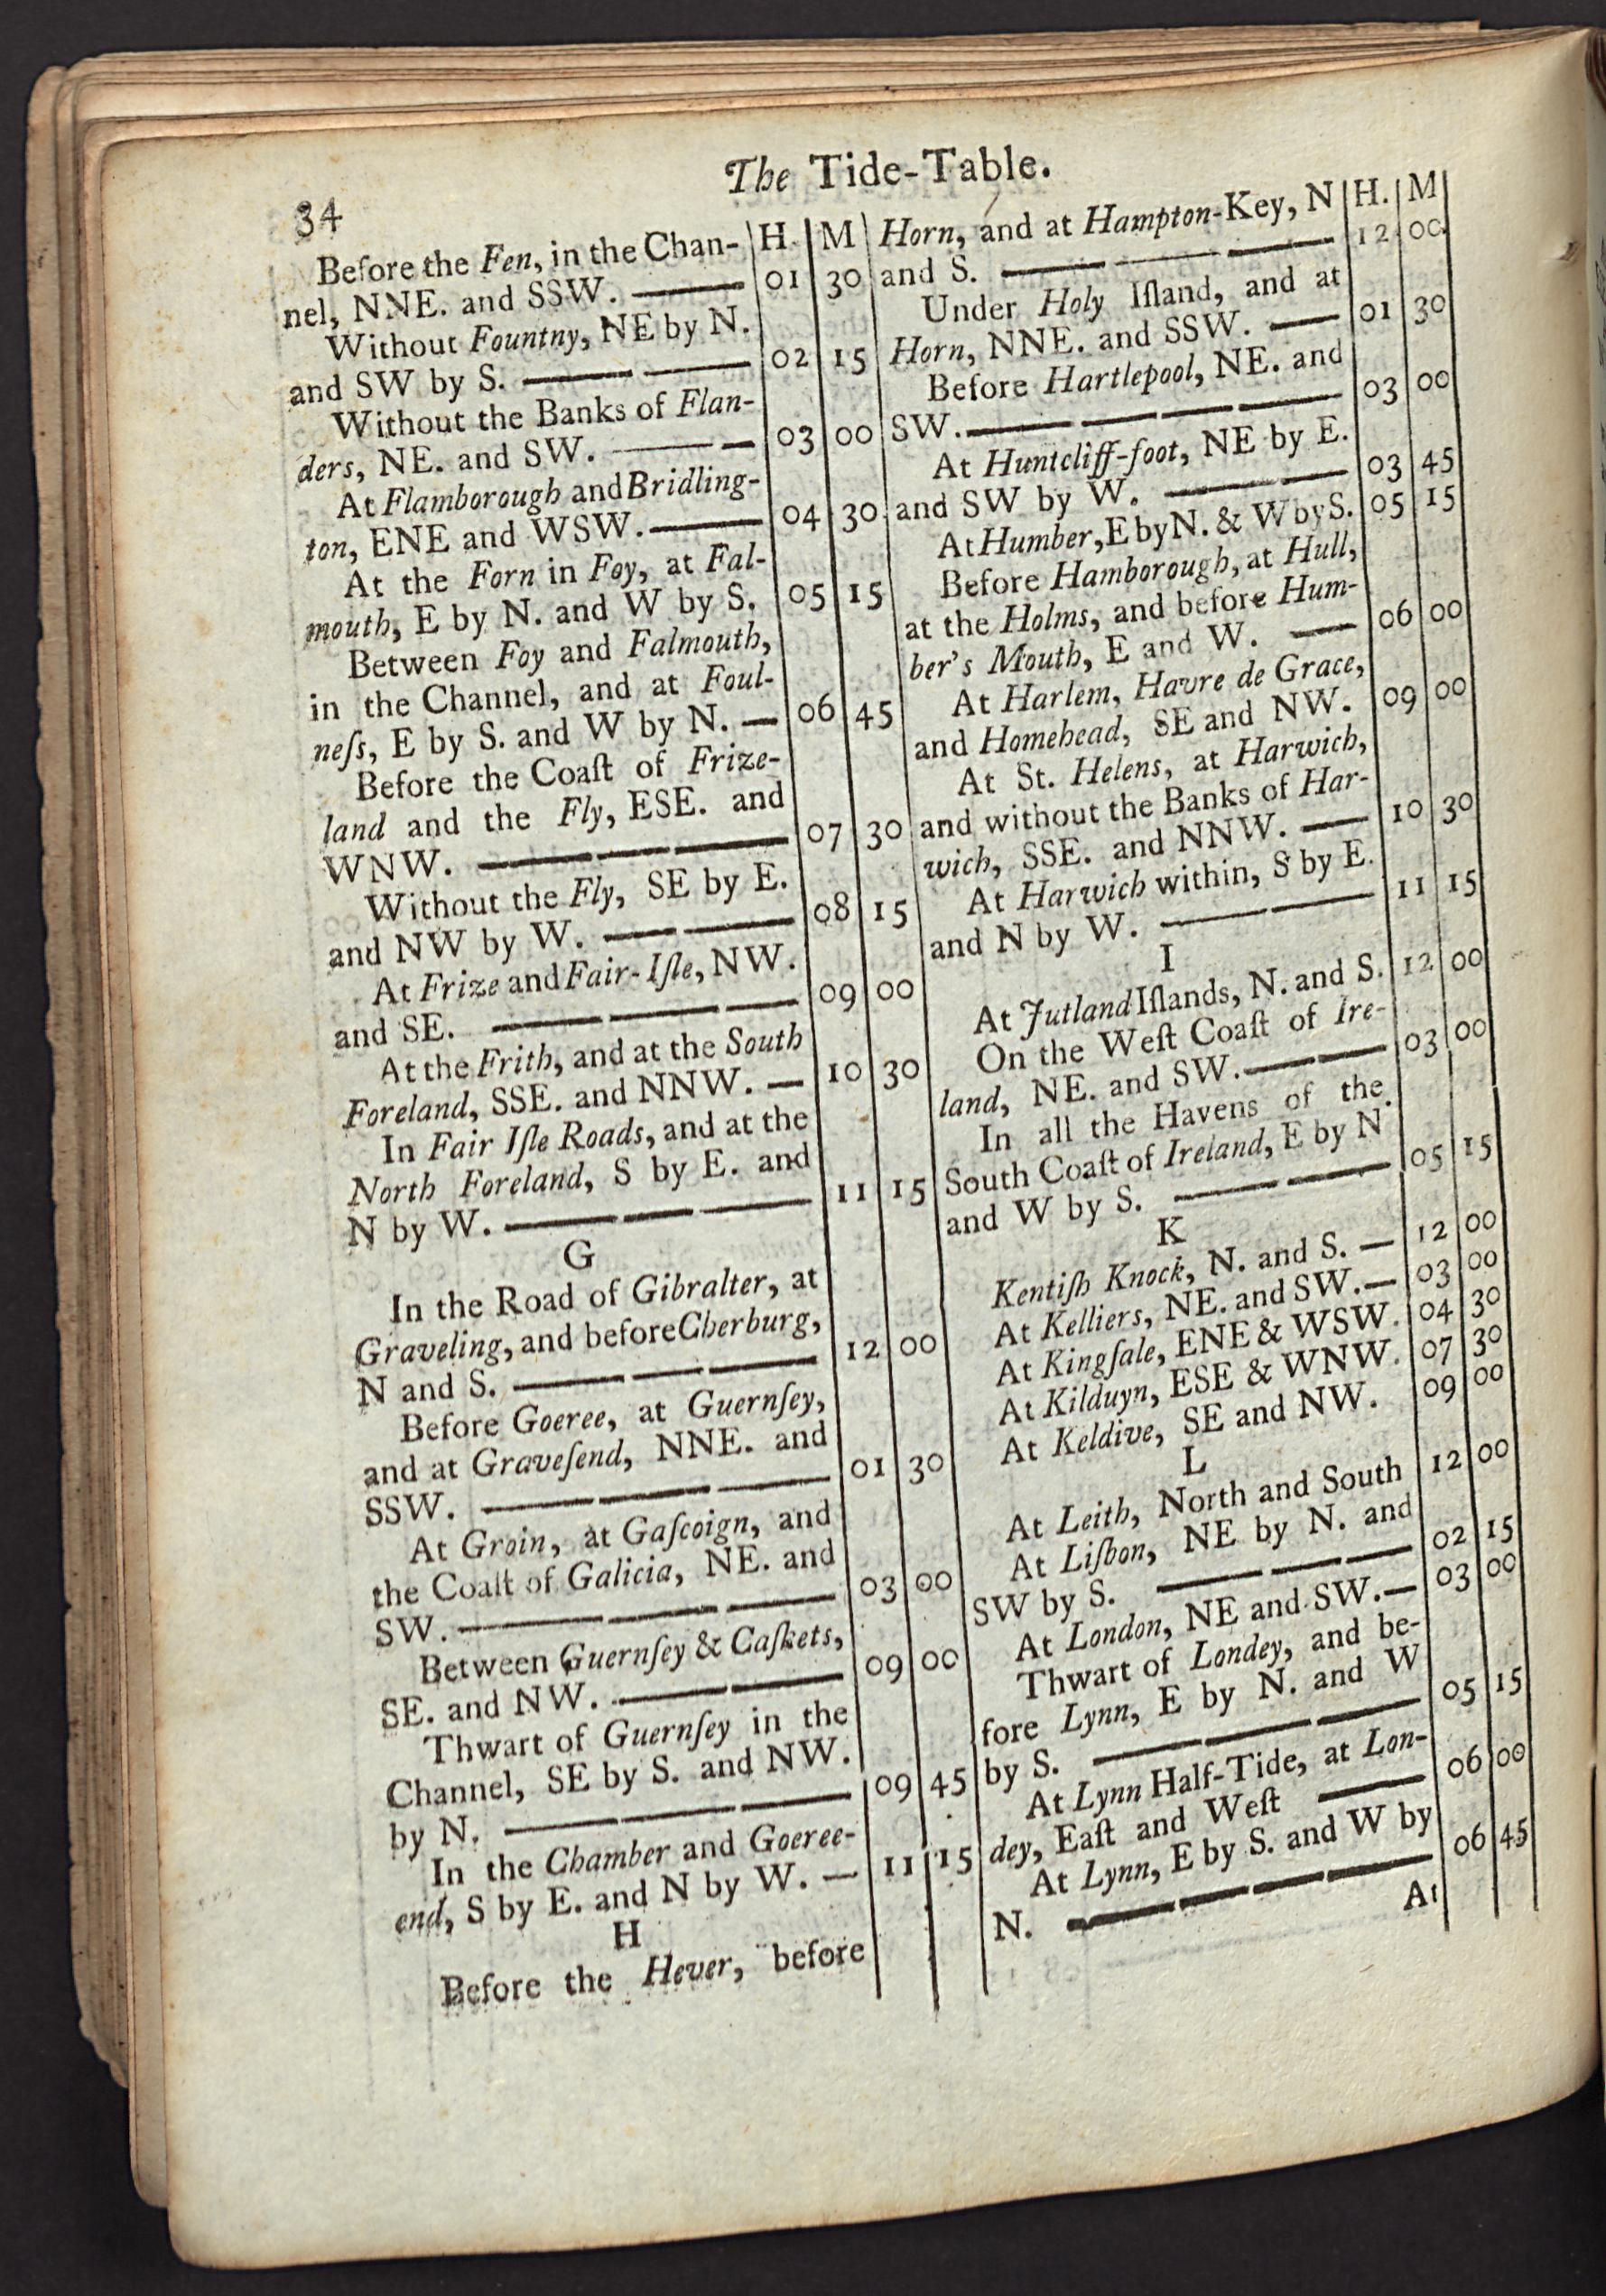 The Tide-Table.
34
H. M
Before the Fen, in the Chan-
nel, NNE. and SSW. —— 01 30
Without Fountny, NE by N.
and SW by S. —— —— 02 15
Without the Banks of Flan-
ders, NE. and SW. —— — 03 00
At Flamborough and Bridling-
ton, ENE and WSW. —— 04 30
At the Forn in Foy, at Fal-
mouth, E by N. and W by S. 05 15
Between Foy and Falmouth,
in the Channel, and at Foul-
neſs, E by S. and W by N. — 06 45
Before the Coaſt of Frize-
land and the Fly, ESE. and
WNW. —— —— —— 07 30
Without the Fly, SE by E.
and NW by W. —— —— 08 15
At Frize and Fair-Iſle, NW.
and SE. —— —— —— 09 00
At the Frith, and at the South
Foreland, SSE. and NNW. — 10 30
In Fair Iſle Roads, and at the
North Foreland, S by E. and
N by W. —— —— —— 11 15
G
In the Road of Gibralter, at
Graveling, and before Cherburg,
N and S. —— —— —— 12 00
Before Goeree, at Guernſey,
and at Graveſend, NNE. and
SSW. —— —— —— 01 30
At Groin, at Gaſcoign, and
the Coaſt of Galicia, NE. and
SW. —— —— —— 03 00
Between Guernſey & Caſkets,
SE. and NW. —— —— 09 00
Thwart of Guernſey in the
Channel, SE by S. and NW.
by N. —— —— —— 09 45
In the Chamber and Goeree-
end, S by E. and N by W. — 11 15
H
Before the Hever, before
H. M
Horn, and at Hampton-Key, N
and S. —— —— —— 12 00
Under Holy Iſland, and at
Horn, NNE. and SSW. —— 01 30
Before Hartlepool, NE. and
SW. —— —— —— 03 00
At Huntcliff-foot, NE by E.
and SW by W. —— —— 03 45
At Humber, E by N. & W by S. 05 15
Before Hamborough, at Hull,
at the Holms, and before Hum-
ber's Mouth, E and W. —— 06 00
At Harlem, Havre de Grace,
and Homehead, SE and NW. 09 00
At St. Helens, at Harwich,
and without the Banks of Har-
wich, SSE. and NNW. —— 10 30
At Harwich within, S by E.
and N by W. —— —— 11 15
I
At Jutland Iſlands, N. and S. 12 00
On the Weſt Coaſt of Ire-
land, NE. and SW. —— —— 03 00
In all the Havens of the
South Coaſt of Ireland, E by N
and W by S. —— —— 05 15
K
Kentiſh Knock, N. and S. — 12 00
At Kelliers, NE. and SW. — 03 00
At Kingſale, ENE & WSW. 04 30
At Kilduyn, ESE & WNW. 07 30
At Keldive, SE and NW. 09 00
L
At Leith, North and South 12 00
At Liſbon, NE by N. and
SW by S. —— —— —— 02 15
At London, NE and SW. — 03 00
Thwart of Londey, and be-
fore Lynn, E by N. and W
by S. —— —— —— 05 15
At Lynn Half-Tide, at Lon-
dey, Eaſt and Weſt —— 06 00
At Lynn, E by S. and W by
N. —— —— —— —— 06 45
At